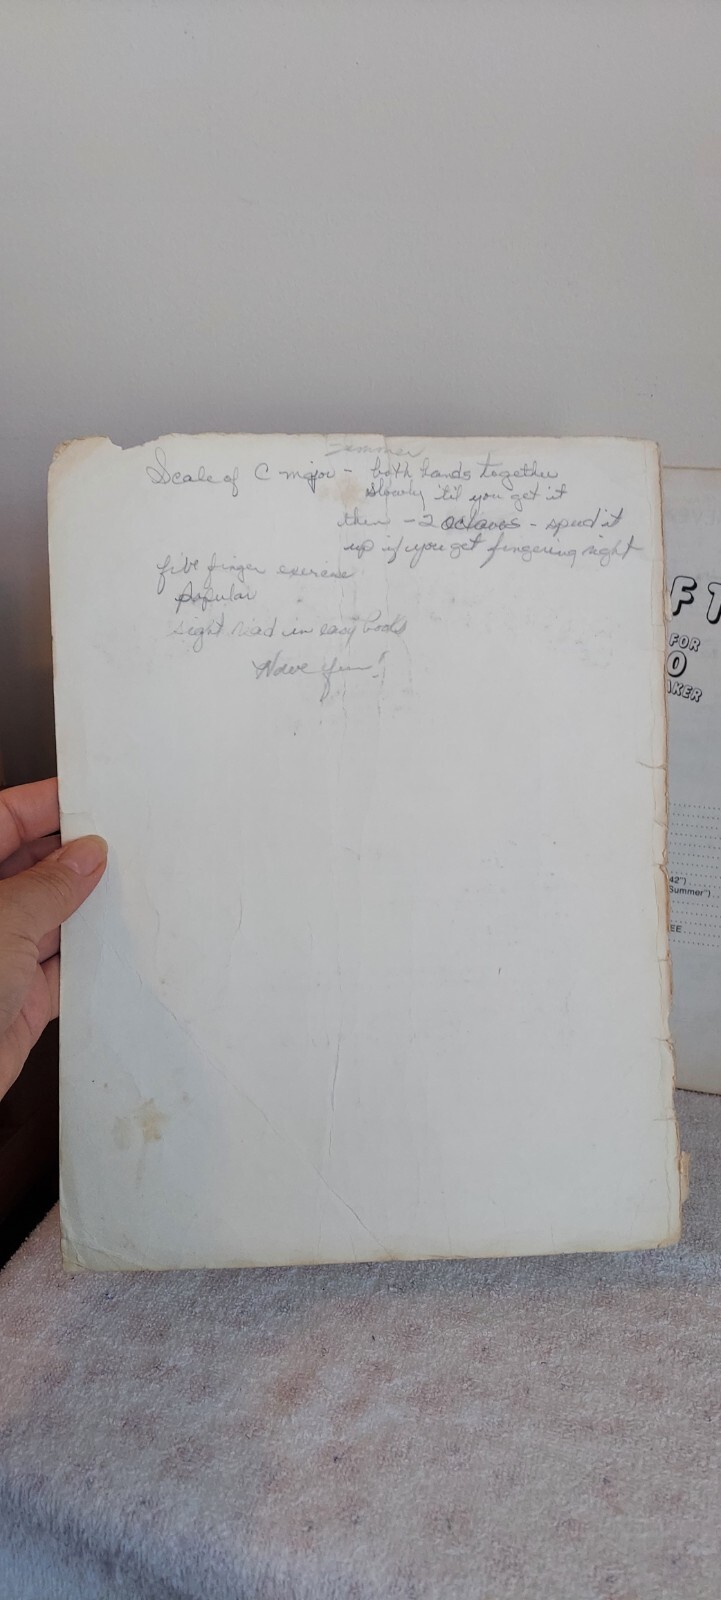 Summer
Scale of C major - both hands together
slowly 'til you get it
then - 2 octaves - speed it
up if you get fingering right
five finger exercise
popular
sight read in easy books
Have fun!
F T
FOR
O
AKER
42")
Summer")
EE